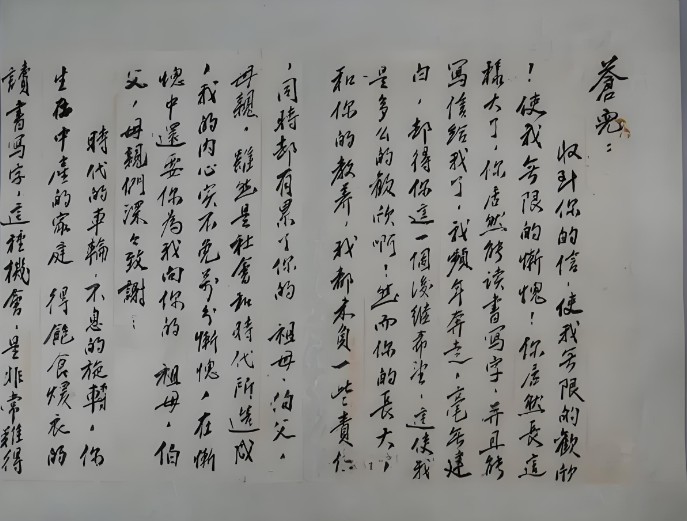 蒼兒：
收到你的信，使我無限的歡欣
！使我無限的慚愧！你居然長這
樣大了，你居然能读書寫字，并且能
写信给我了，我頻年奔走，毫無建
白，却得你這一個後继希望，這使我
是多么的歡欣啊！然而你的長大，
和你的教养，我都未負一些責任
，同時却有累了你的 祖母，伯父，
母親。雖然是社會和時代所造成
，我的内心实不免萬分慚愧，在慚
愧中還要你為我向你的 祖母，伯
父，母親們深々致謝：
時代的車輪，不息的旋轉，你
生存中產的家庭 得飽食煖衣的
讀書写字，這種機會，是非常難得